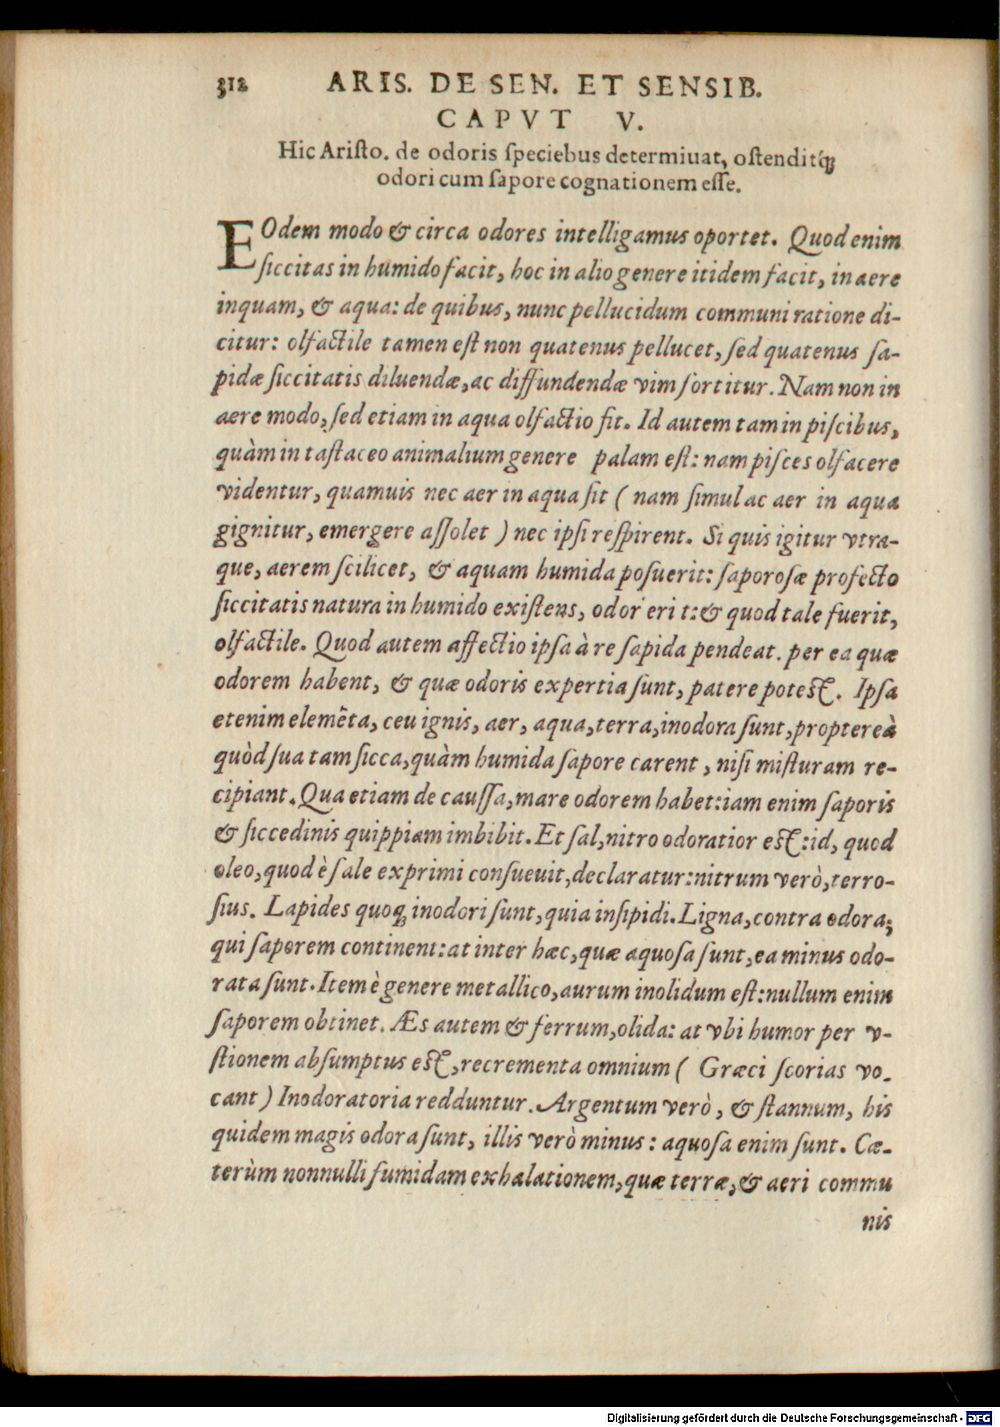 312 ARIS. DE SEN. ET SENSIB.
CAPVT V.
Hic Aristo. de odoris speciebus determiuat, ostenditq́ꝫ
odori cum sapore cognationem esse.
EOdem modo & circa odores intelligamus oportet. Quod enim
siccitas in humido facit, hoc in alio genere itidem facit, in aere
inquam, & aqua: de quibus, nunc pellucidum communi ratione di-
citur: olfactile tamen est non quatenus pellucet, sed quatenus sa-
pidæ siccitatis diluendæ, ac diffundendæ vim sortitur. Nam non in
aere modo, sed etiam in aqua olfactio fit. Id autem tam in piscibus,
quàm in tastaceo animalium genere palam est: nam pisces olfacere
videntur, quamuis nec aer in aqua sit ( nam simul ac aer in aqua
gignitur, emergere assolet ) nec ipsi respirent. Si quis igitur vtra-
que, aerem scilicet, & aquam humida posuerit: saporosæ profecto
siccitatis natura in humido existens, odor eri t: & quod tale fuerit,
olfactile. Quod autem affectio ipsa à re sapida pendeat. per ea quæ
odorem habent, & quæ odoris expertia sunt, patere potest. Ipsa
etenim elemēta, ceu ignis, aer, aqua, terra, inodora sunt, propterea
quòd sua tam sicca, quàm humida sapore carent, nisi misturam re-
cipiant. Qua etiam de caussa, mare odorem habet: iam enim saporis
& siccedinis quippiam imbibit. Et sal, nitro odoratior est: id, quod
oleo, quod è sale exprimi consueuit, declaratur: nitrum verò, terro-
sius. Lapides quoqꝫ inodori sunt, quia insipidi. Ligna, contra odora;
qui saporem continent: at inter hæc, quæ aquosa sunt, ea minus odo-
rata sunt. Item è genere metallico, aurum inolidum est: nullum enim
saporem obtinet. Æs autem & ferrum, olida: at vbi humor per v-
stionem absumptus est, recrementa omnium ( Græci scorias vo.
cant ) Inodoratoria redduntur. Argentum verò, & stannum, his
quidem magis odora sunt, illis verò minus: aquosa enim sunt. Cæ-
terùm nonnulli fumidam exhalationem, quæ terræ, & aeri commu
nis
Digitalisierung gefördert durch die Deutsche Forschungsgemeinschaft - DFG